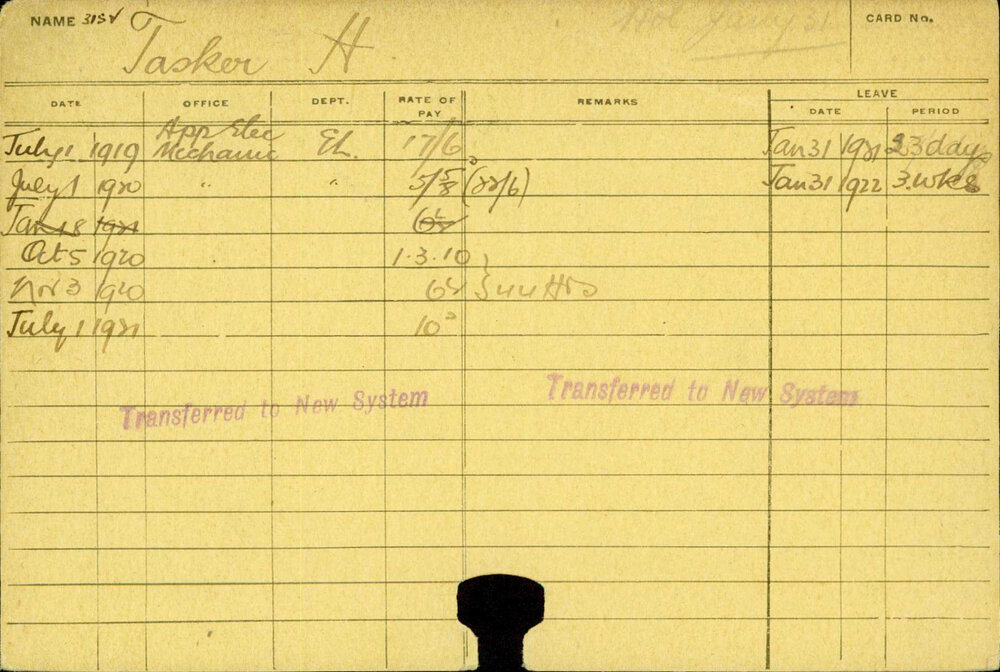 NAME Tasker H
CARD No.
DATE OFFICE DEPT. RATE OF PAY REMARKS LEAVE
DATE PERIOD
July 1 1919 App Elec Mechanic El. 17/6 Jan 31 1921 23 days
July 1 1920 " " (22/6) Jan 31 1922 3 wks
Jan 18 1921
Oct 5 1920 1.3.10
Nov 3 1920 44 Hrs
July 1 1921
Transferred to New System Transferred to New System